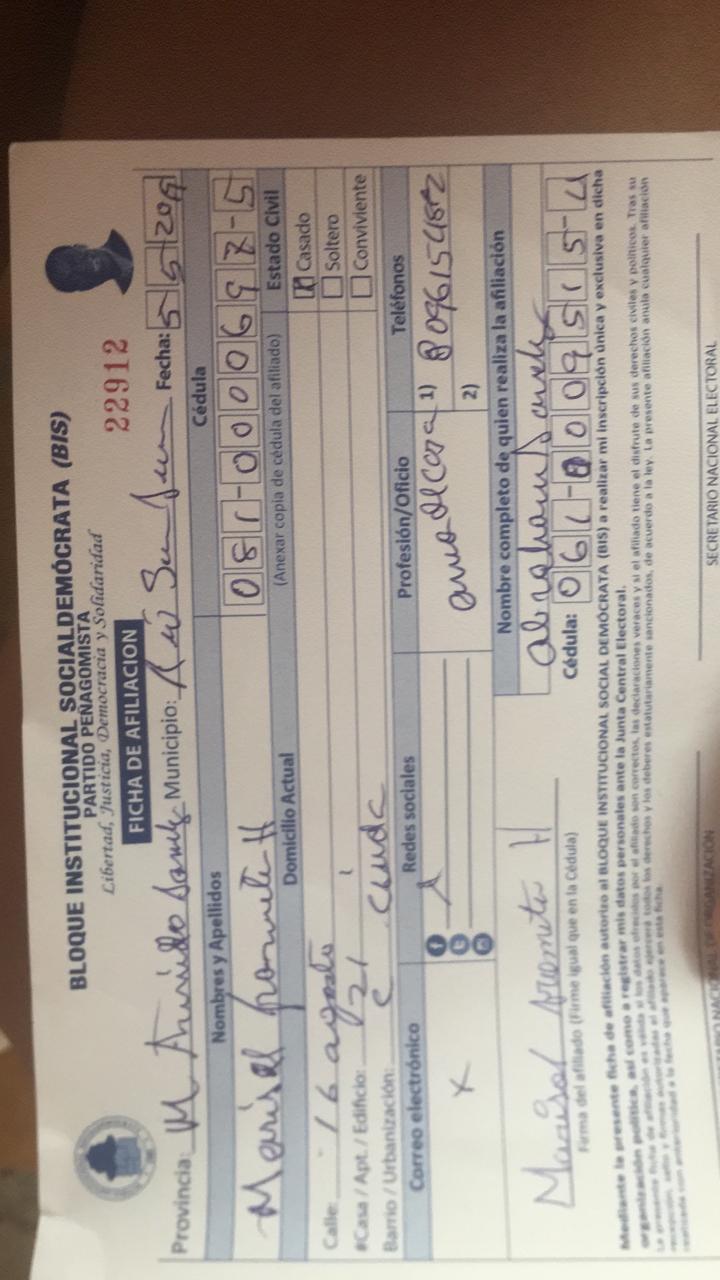 BLOQUE INSTITUCIONAL SOCIALDEMÓCRATA (BIS)
PARTIDO PEÑAGOMISTA
Libertad, Justicia, Democracia y Solidaridad
22912
FICHA DE AFILIACION
Provincia: M Municipio: Rió San Juan Fecha: 5 5 209
Nombres y Apellidos Cédula
Marisol H 081-0000697-5
Domicilio Actual (Anexar copia de cédula del afiliado) Estado Civil
Calle: 16 agosto X Casado
#Casa / Apt. / Edificio: 21 Soltero
Barrio / Urbanización: Conviviente
Correo electrónico Redes sociales Profesión/Oficio Teléfonos
x ama de casa 1) 8096154582
2)
Nombre completo de quien realiza la afiliación
abraham
Marisol H Cédula: 061-0009515-4
Firma del afiliado (Firme igual que en la Cédula)
Mediante la presente ficha de afiliación autorizo al BLOQUE INSTITUCIONAL SOCIAL DEMÓCRATA (BIS) a realizar mi inscripción única y exclusiva en dicha
organización política, así como a registrar mis datos personales ante la Junta Central Electoral.
La presente ficha de afiliación es válida si los datos ofrecidos por el afiliado son correctos, las declaraciones veraces y si el afiliado tiene el disfrute de sus derechos civiles y políticos. Tras su
recepción, sello y firmas autorizadas el afiliado ejercerá todos los derechos y los deberes estatutariamente sancionados, de acuerdo a la ley. La presente afiliación anula cualquier afiliación
realizada con anterioridad a la fecha que aparece en esta ficha.
NACIONAL DE ORGANIZACIÓN SECRETARIO NACIONAL ELECTORAL